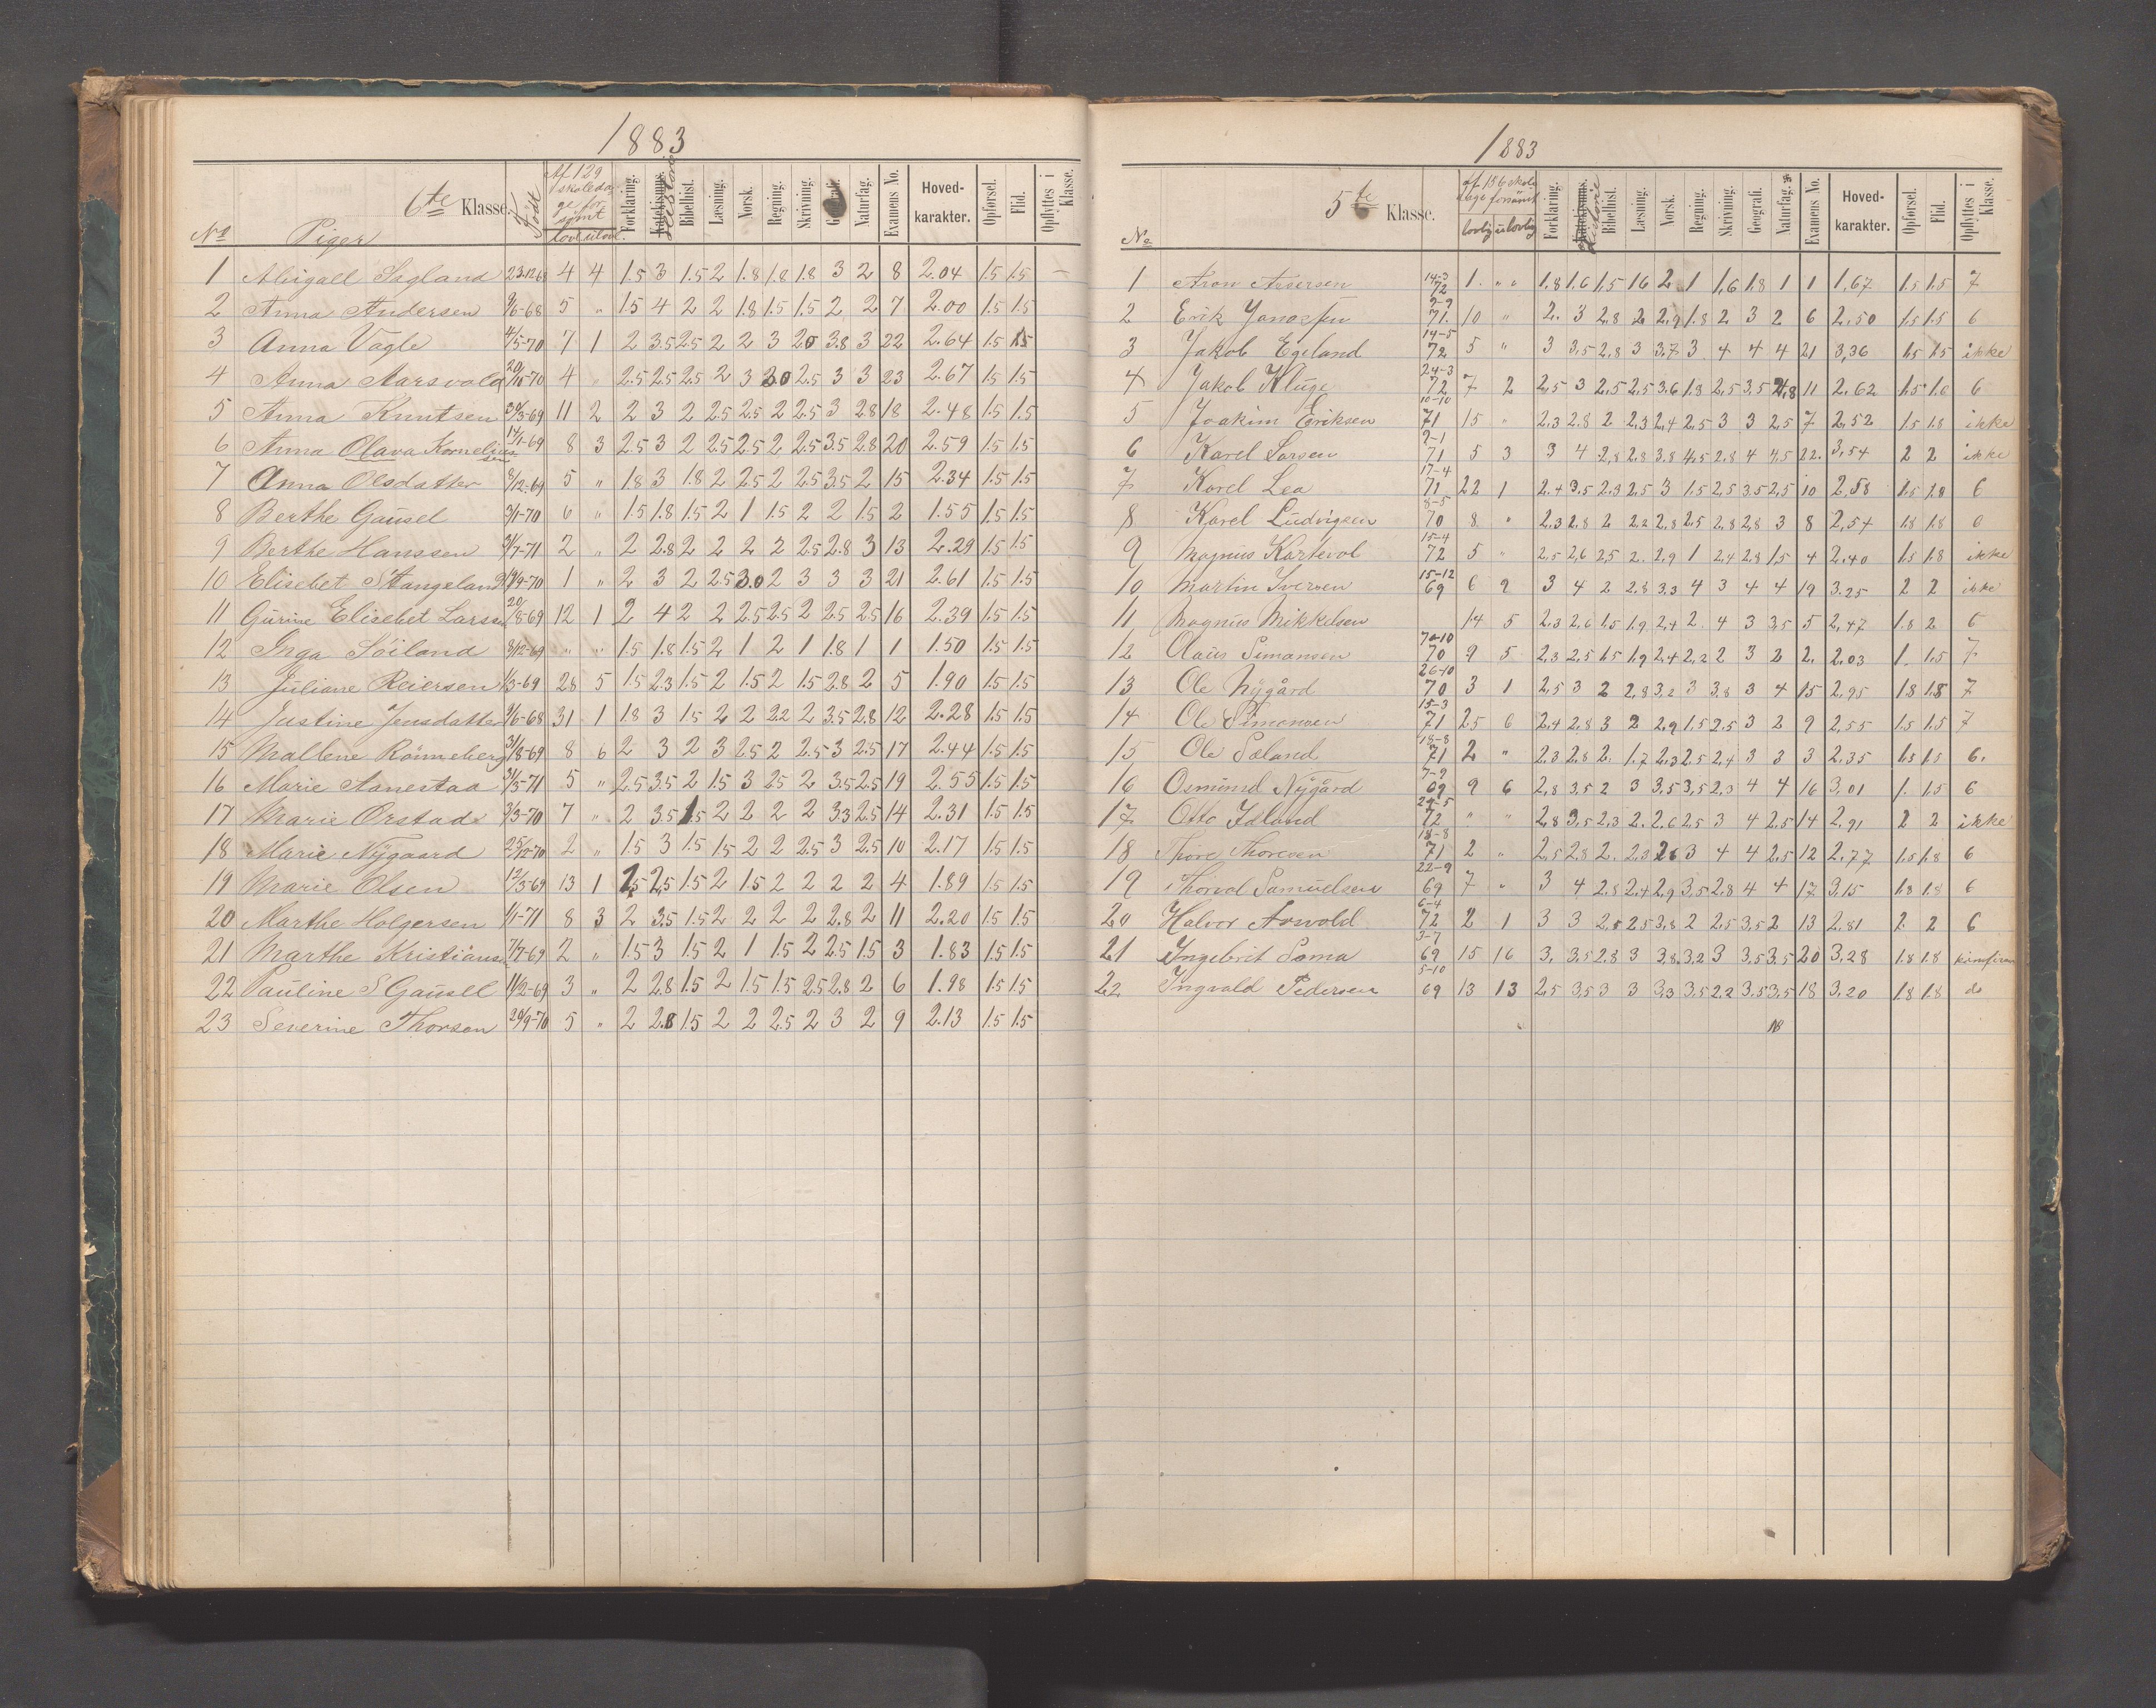 1883
Nº Piger 6te Klasse. Född Af 129 skoledage forsömt lovl. ulovl. Forklaring. Historie Bibelhist. Læsning. Norsk. Regning. Skrivning. Geografi. Naturfag. Examens No. Hovedkarakter. Opførsel. Flid. Opflyttes i Klasse.
1 Abigael Sagland 23-12-68 4 4 1.5 3 1.5 2 1.8 1.8 1.8 3 2 8 2.04 1.5 1.5 –
2 Anna Andersen 9/6-68 5 " 1.5 4 2 2 1.8 1.5 1.5 2 2 7 2.00 1.5 1.5
3 Anna Vagle 4/5-70 7 1 2 3.5 2.5 2 2 3 2.0 3.8 3 22 2.64 1.5 1.5
4 Anna Aarsvold 20/10-70 4 " 2.5 2.5 2.5 2 3 3.0 2.5 3 3 23 2.67 1.5 1.5
5 Anna Knutsen 30/3-69 11 2 2 3 2 2.5 2.5 2 2.5 3 2.8 18 2.48 1.5 1.5
6 Anna Olava Kornelius sen 14/1-69 8 3 2.5 3 2 2.5 2.5 2 2.5 3.5 2.8 20 2.59 1.5 1.5
7 Anna Olsdatter 8/12-69 5 " 1.8 3 1.8 2 2.5 2 2.5 3.5 2 15 2.34 1.5 1.5
8 Berthe Gausel 3/1-70 6 " 1.5 1.8 1.5 2 1 1.5 2 2 1.5 2 1.55 1.5 1.5
9 Berthe Hanssen 3/7-71 2 " 2 2.8 2 2 2 2 2.5 2.8 3 13 2.29 1.5 1.5
10 Elisebet Stangeland 19/9-70 1 " 2 3 2 2.5 3.0 2 3 3 3 21 2.61 1.5 1.5
11 Gurine Elisebet Larsen 20/8-69 12 1 2 4 2 2 2.5 2.5 2 2.5 2.5 16 2.39 1.5 1.5
12 Inga Söiland 3/12-69 " " 1.5 1.8 1.5 2 1 2 1 1.8 1 1 1.50 1.5 1.5
13 Juliane Reiersen 1/3-69 28 5 1.5 2.3 1.5 2 1.5 2 1.5 2.8 2 5 1.90 1.5 1.5
14 Justine Jensdatter 9/6-68 31 1 1.8 3 1.5 2 2 2.2 2 3.5 2.8 12 2.28 1.5 1.5
15 Mallene Rönneberg 31/8-69 8 6 2 3 2 3 2.5 2 2.5 3 2.5 17 2.44 1.5 1.5
16 Marie Aanestad 31/5-71 5 " 2.5 3.5 2 1.5 3 2.5 2 3.5 2.5 19 2.55 1.5 1.5
17 Marie Orstad 3/3-70 7 " 2 3.5 1.5 2 2 2 2 3.3 2.5 14 2.31 1.5 1.5
18 Marie Nÿgaard 25/12-70 2 " 1.5 3 1.5 1.5 2 2 2.5 3 2.5 10 2.17 1.5 1.5
19 Marie Olsen 12/3-69 13 1 1.5 2.5 1.5 2 1.5 2 2 2 2 4 1.89 1.5 1.5
20 Marthe Holgersen 1/1-71 8 3 2 3.5 1.5 2 2 2 2 2.8 2 11 2.20 1.5 1.5
21 Marthe Kristiansen 7/7-69 2 " 1.5 3 1.5 2 1 1.5 2 2.5 1.5 3 1.83 1.5 1.5
22 Pauline S Gausel 11/2-69 3 " 2 2.8 1.5 2 1.5 1.5 2.5 2.8 2 6 1.98 1.5 1.5
23 Severine Thorsen 20/9-70 5 " 2 2.8 1.5 2 2 2.5 2 3 2 9 2.13 1.5 1.5
1883
No 5te Klasse. af 136 skoledage forsömt lovlig ulovlig Forklaring. Historie Bibelhist. Læsning. Norsk. Regning. Skrivning. Geografi. Naturfag. Examens No. Hovedkarakter. Opførsel. Flid. Opflyttes i Klasse.
1 Aron Assersen 14-3 72 1 " " 1,8 1,6 1,5 1,6 2 1 1,6 1,8 1 1 1,67 1.5 1.5 7
2 Erik Jonassen 9-9 71 10 " 2. 3 2,8 2 2,9 1.8 2 3 2 6 2,50 1.5 1.5 6
3 Jakob Egeland 14-5 72 5 " 3 3,5 2,8 3 3.7 3 4 4 4 21 3,36 1.5 1.5 ikke
4 Jakob Kluge 24-3 72 7 2 2,5 3 2,5 2,5 3,6 1.8 2,5 3,5 2,8 11 2,62 1.5 1.6 6
5 Joakim Eriksen 10-10 71 15 " 2,3 2.8 2 2,3 2,4 2,5 3 3 2,5 7 2,52 1.5 1.8 ikke
6 Karel Larsen 2-1 71 5 3 3 4 2,8 2.8 3.8 4,5 2.8 4 4,5 22. 3,54 2 2 ikke
7 Karel Lea 17-4 71 22 1 2.4 3.5 2.3 2,5 3 1.5 2,5 3.5 2,5 10 2,58 1.5 1.8 6
8 Karel Ludvigsen 8-5 70 8 " 2.3 2.8 2 2,2 2,8 2.5 2,8 2,8 3 8 2,54 1.8 1.8 6
9 Magnus Kartevol 15-4 72 5 " 2.5 2,6 2,5 2. 2,9 1 2,4 2.8 1,5 4 2.40 1.5 1.8 ikke
10 Martin Iversen 15-12 69 6 2 3 4 2 2,8 3.3 4 3 4 4 19 3.25 2 2 ikke
11 Magnus Mikkelsen 14 5 2.3 2,6 1.5 1.9 2,4 2. 4 3 3,5 5 2,47 1.8 2 6
12 Olaus Simonsen 70-10 70 9 5 2.3 2,5 1.5 1,9 2.4 2,2 2 3 2 2. 2,03 1. 1.5 7
13 Ole Nÿgård 26-10 70 3 1 2,5 3 2 2,8 3,2 3 3,8 3 4 15 2,95 1.8 1.8 7
14 Ole Simonsen 15-3 71 25 6 2.4 2.8 3 2 2,9 1.5 2.5 3 2 9 2,55 1.5 1.5 7
15 Ole Sæland 18-8 71 2 " 2.3 2,8 2. 1.7 2,3 2.5 2,4 3 3 3 2.35 1.5 1.5 6.
16 Osmund Nÿgård 7-9 69 9 6 2,8 3.5 2 3 3,5 3,5 2,3 4 4 16 3,01 1. 1.5 6
17 Otto Jæland 24-5 72 " " 2.8 3,5 2,3 2. 2.6 2,5 3 4 2.5 14 2.91 2 2 ikke
18 Thore Thoresen 18-8 71 2 " 2,5 2.8 2. 2.3 2,6 3 4 4 2,5 12 2.77 1.5 1.8 6
19 Thorvol Samuelsen 22-9 69 7 " 3 4 2.8 2.4 2,9 3,5 2.8 4 4 17 3,15 1.8 1.8 6
20 Halvor Aswold 6-4 72 2 1 3 3 2,5 2,5 3,8 2 2,5 3,5 2 13 2.81 2. 2 6
21 Ingebrit Soma 3-7 69 15 16 3, 3,5 2.8 3 3,8 3.2 3 3,5 3,5 20 3,28 1.8 1.8
22 Ingvald Pedersen 5-10 69 13 13 2,5 3,5 3 3 3,3 3.5 2.2 3.5 3,5 18 3,20 1.8 1.8 do